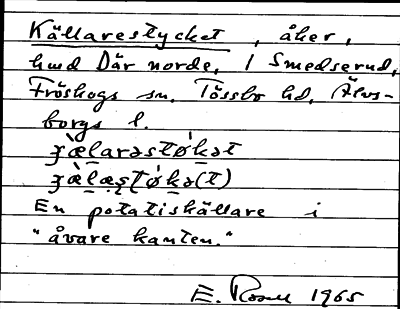 Källarestycket, åker,
hmd Där norde, 1 Smedserud,
Fröskogs sn, Tössbo hd, Älvs-
borgs l.
ʒæ̀larəstǿkət
ʒæ̀læʂtǿkə(t)
En potatiskällare i
"åvare kanten."
E. 1965